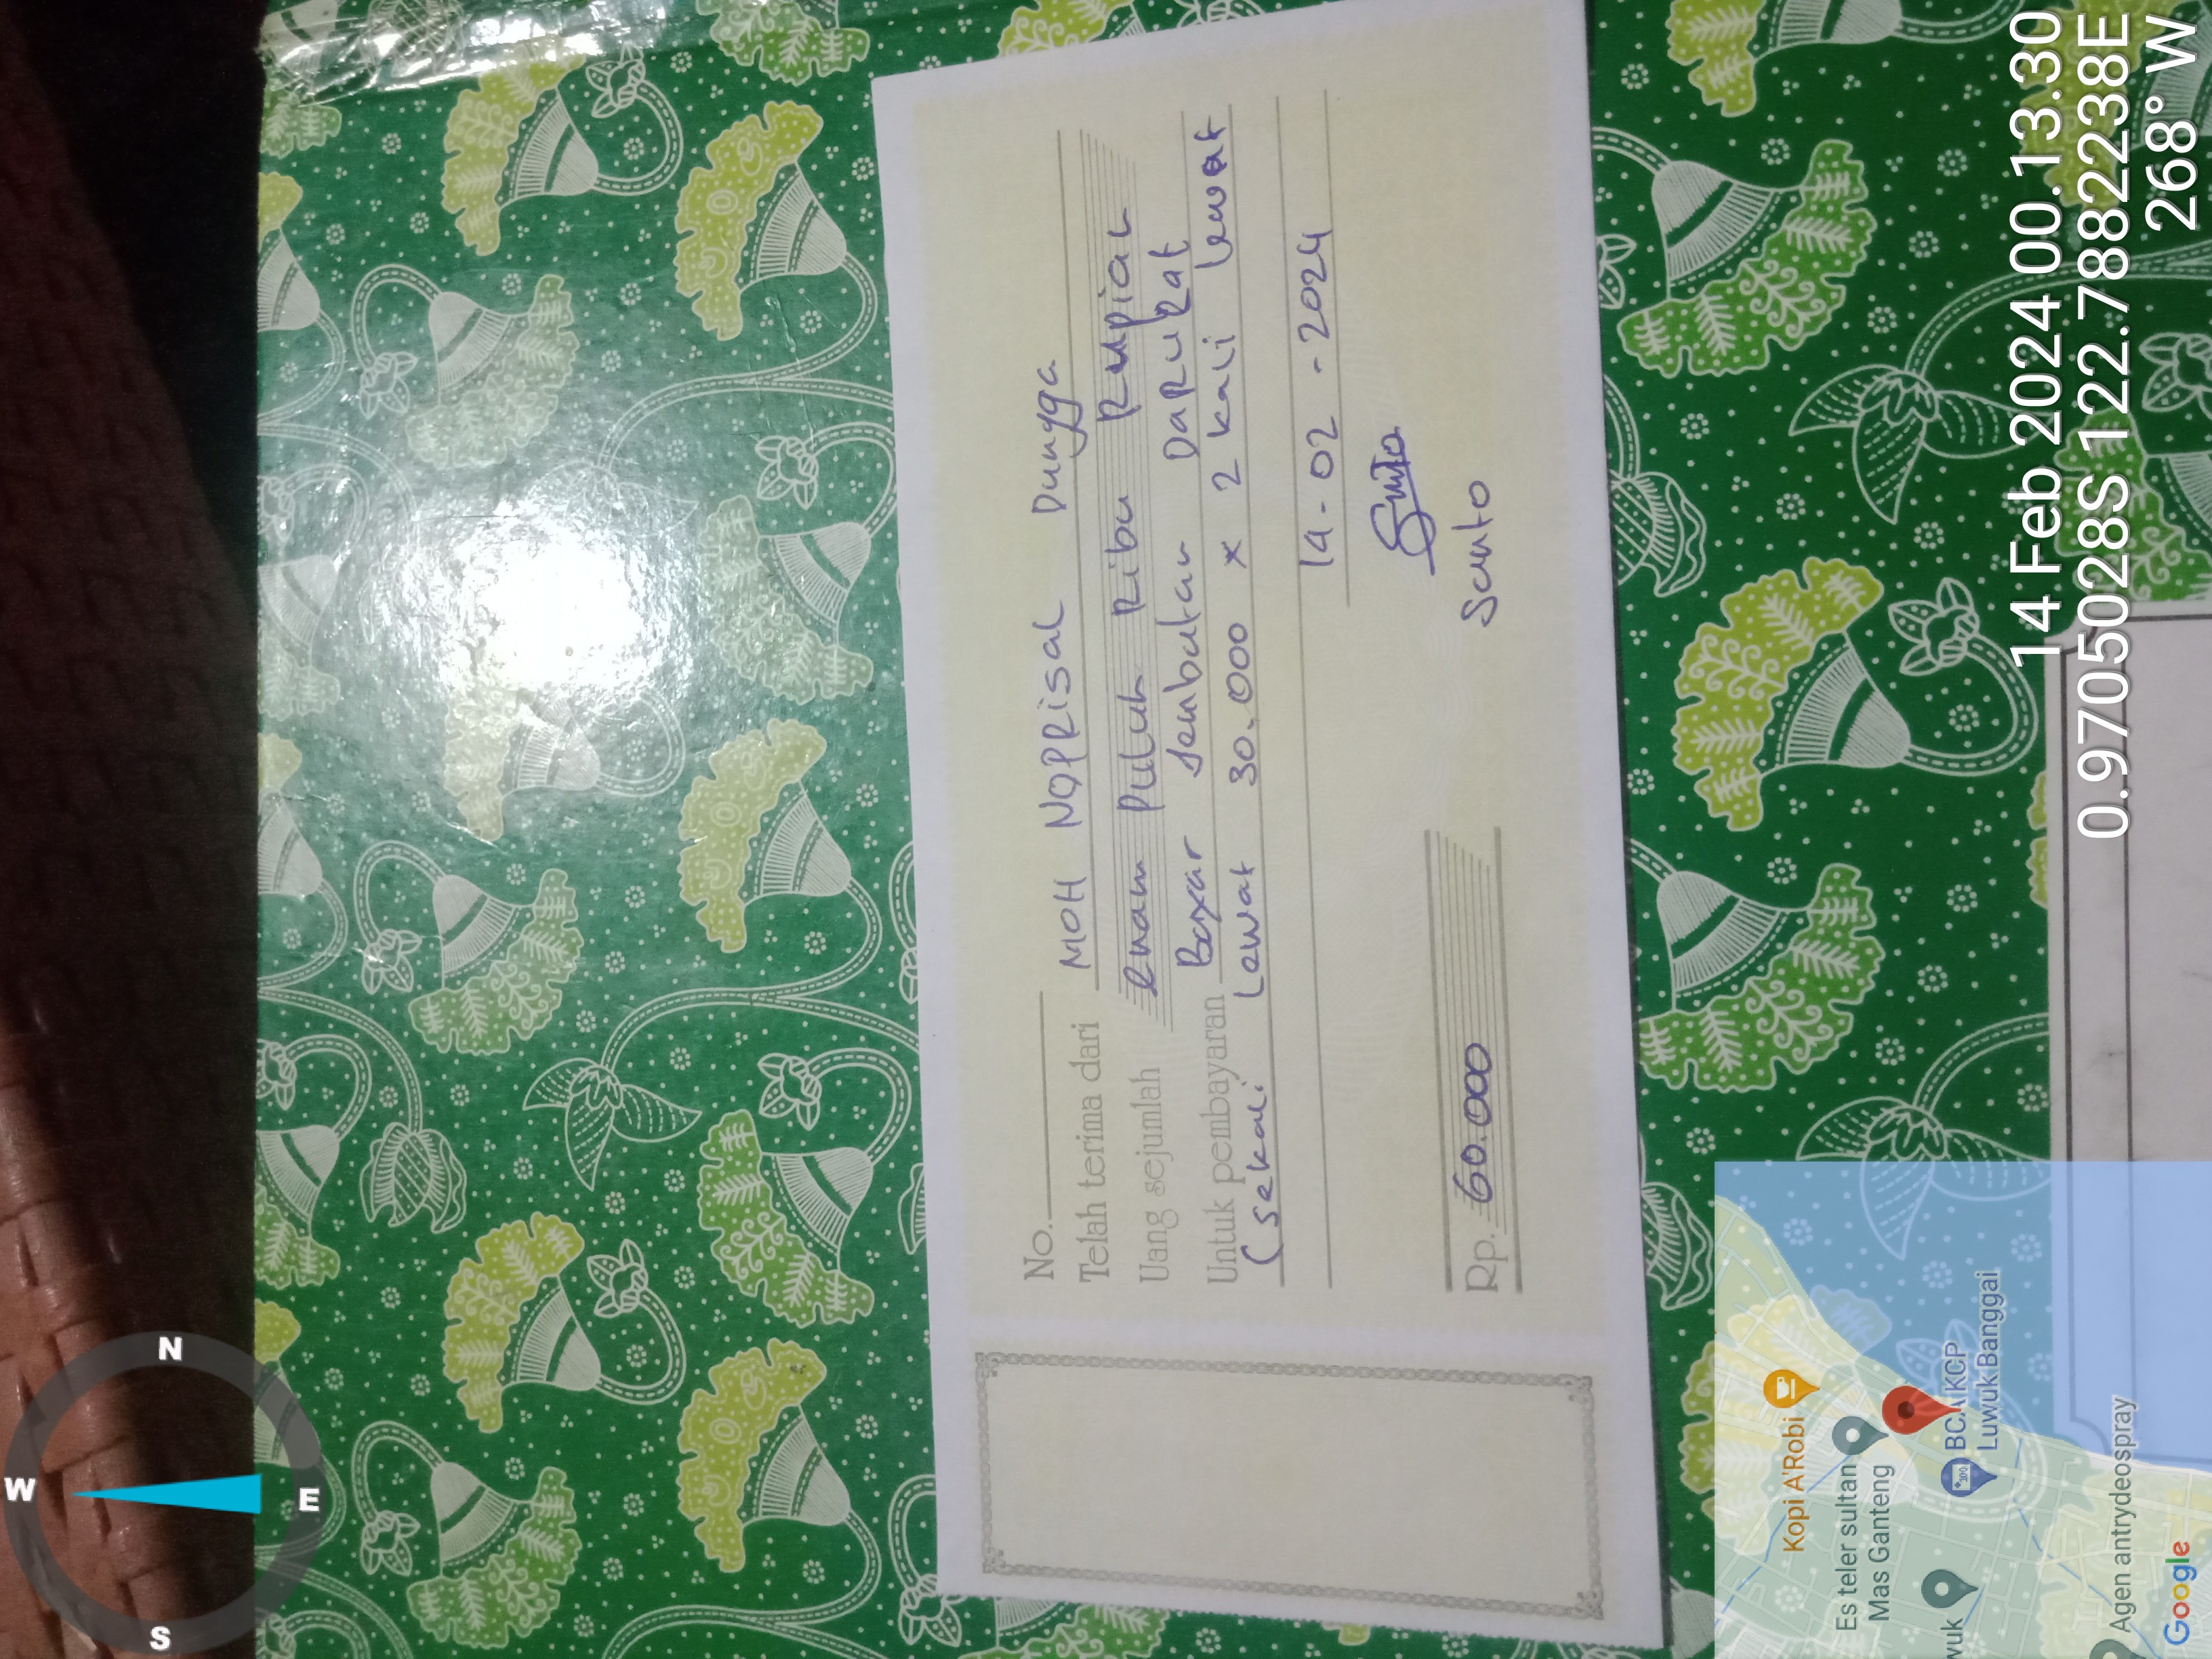 No.
Telah terima dari MOH NOPRisaL Dungga
Uang sejumlah enam Puluh Ribu Rupiah
Untuk pembayaran Bayar Jembatan DaRuRat
(sekali Lewat 30.000 x 2 kali lewat
14-02-2024
Rp. 60.000
Santo
14 Feb 2024 00.13.30
0.97050028S 122.78822238E
268° W
N
W
E
S
Kopi A'Robi
Es teler sultan
Mas Ganteng
BCA KCP
Luwuk Banggai
wuk
Agen antrydeospray
Google